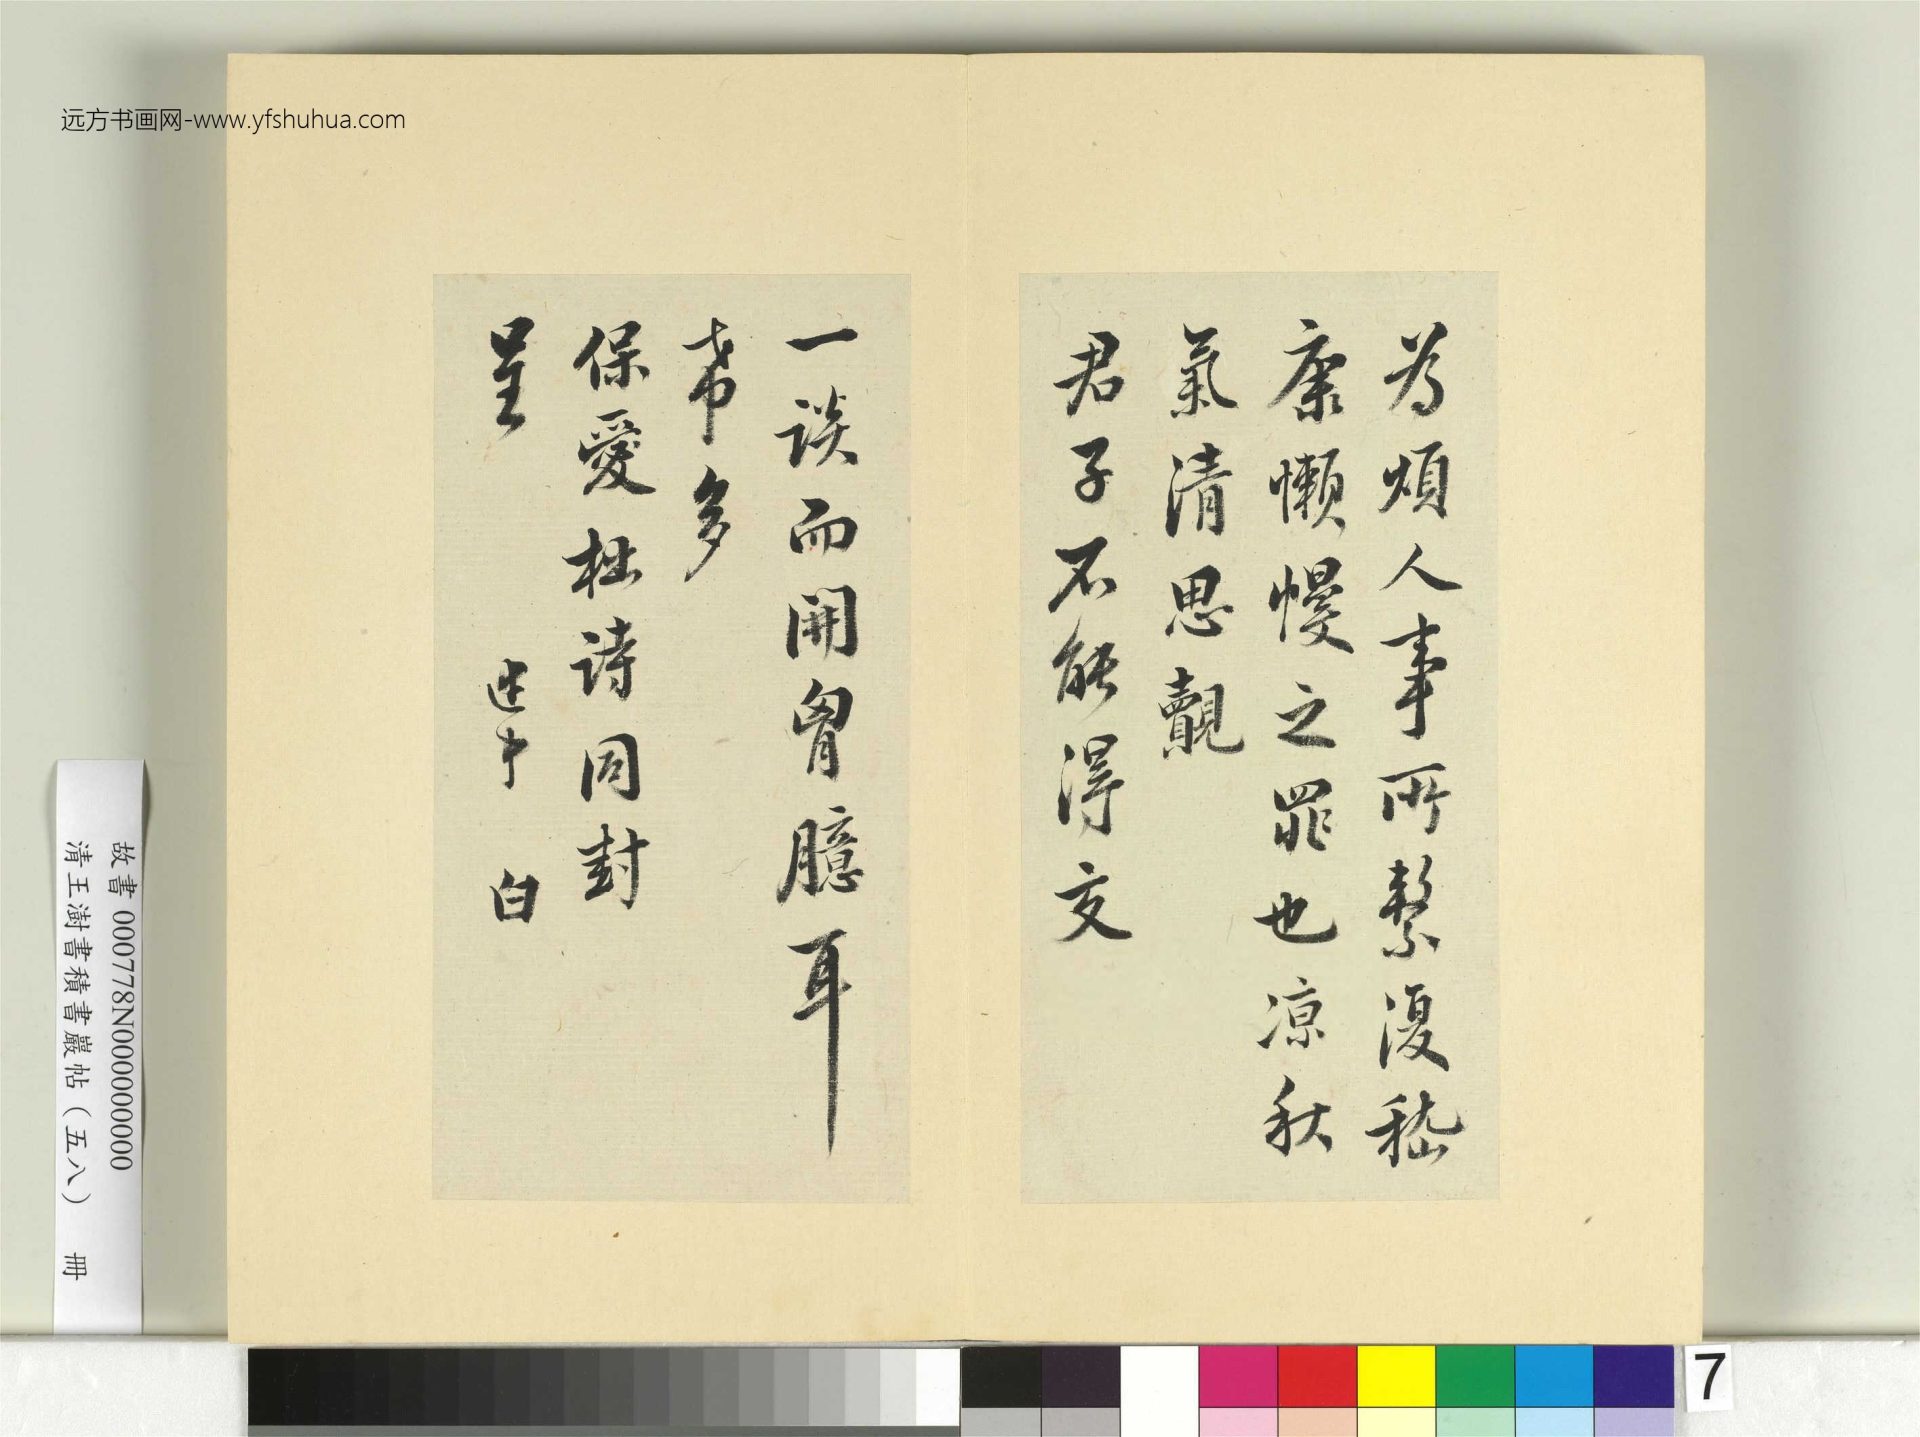 远方书画网-www.yfshuhua.com
為煩人事所繫復嵇
康懶慢之罪也凉秋
氣清思覿
君子不能得交
一談而開胷臆耳
希多
保愛拙詩同封
呈
白
故書 000778N000000000
清王澍書積書巖帖（五八） 冊
7